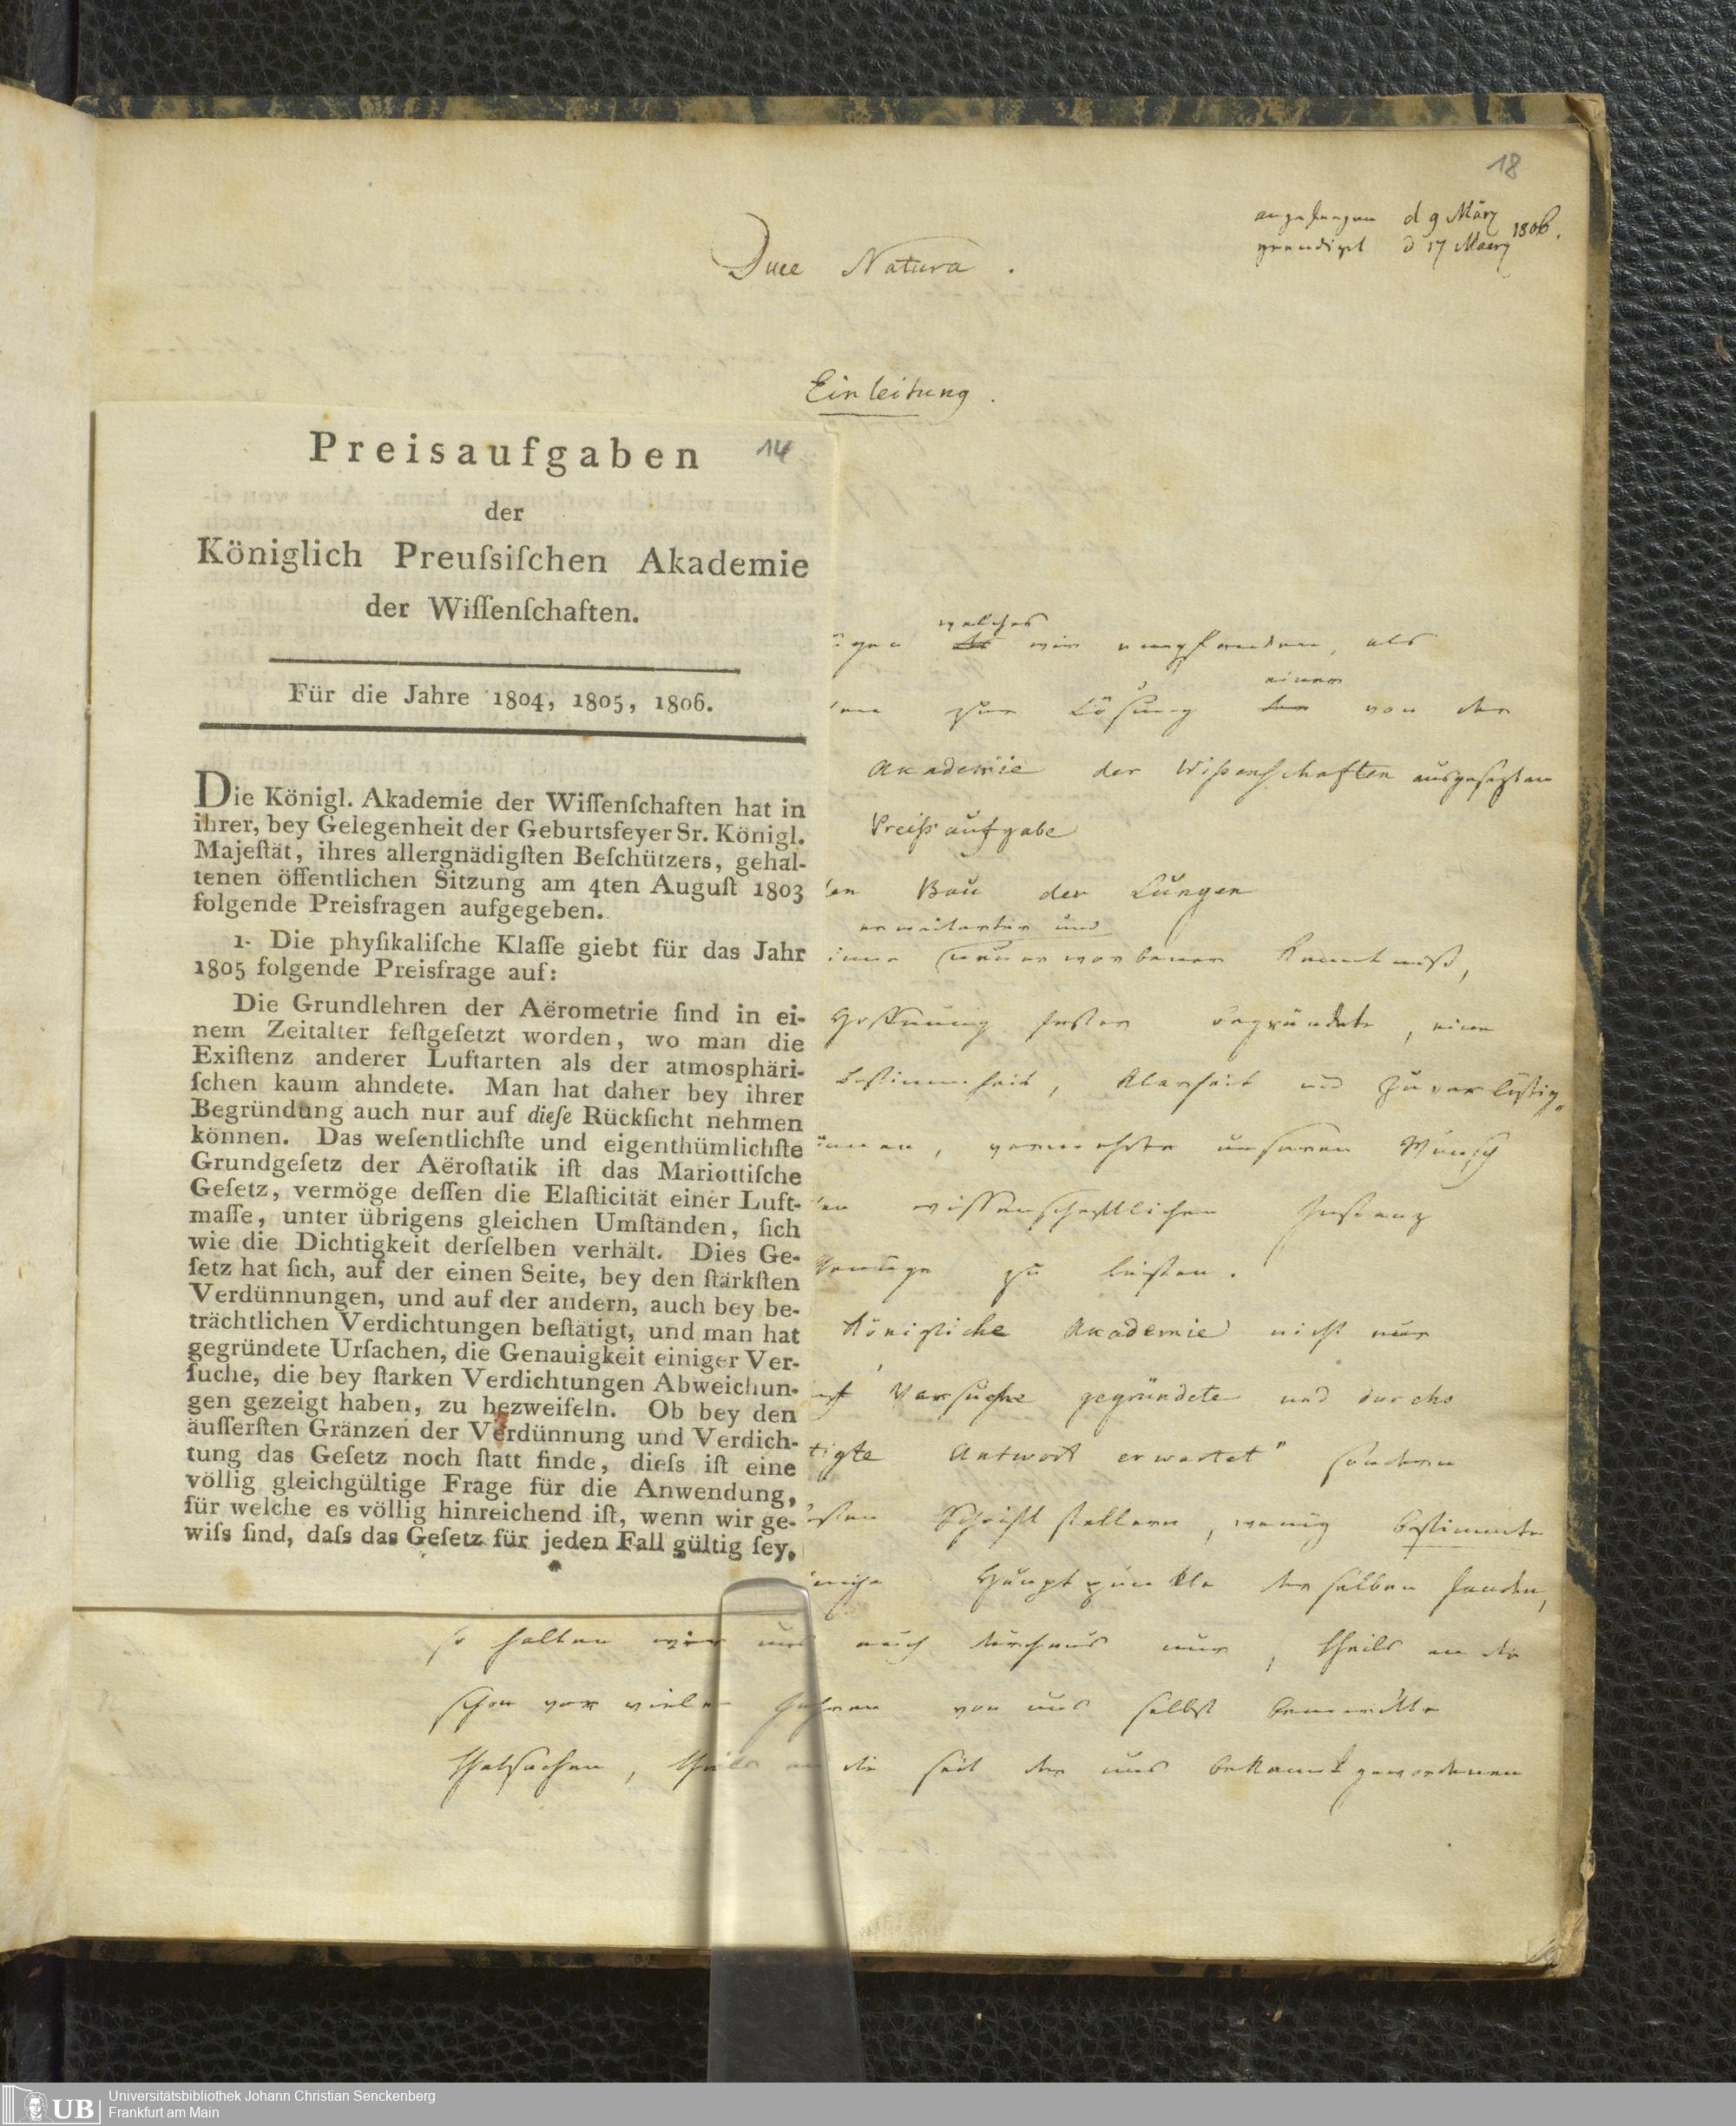 18
angefangen d 9 März
geendigt d 17 Maerz 1806.
Duce Natura.
Einleitung.
Preisaufgaben
14
der
Königlich Preuſsiſchen Akademie
der Wiſſenſchaften.
Für die Jahre 1804, 1805, 1806.
Die Königl. Akademie der Wiſſenſchaften hat in
ihrer, bey Gelegenheit der Geburtsfeyer Sr. Königl.
Majeſtät, ihres allergnädigſten Beſchützers, gehal-
tenen öffentlichen Sitzung am 4ten Auguſt 1803
folgende Preisfragen aufgegeben.
1. Die phyſikaliſche Klaſſe giebt für das Jahr
1805 folgende Preisfrage auf:
Die Grundlehren der Aërometrie ſind in ei-
nem Zeitalter feſtgeſetzt worden, wo man die
Exiſtenz anderer Luftarten als der atmosphäri-
ſchen kaum ahndete. Man hat daher bey ihrer
Begründung auch nur auf dieſe Rückſicht nehmen
können. Das weſentlichſte und eigenthümlichſte
Grundgeſetz der Aëroſtatik iſt das Mariottiſche
Geſetz, vermöge deſſen die Elaſticität einer Luft-
maſſe, unter übrigens gleichen Umſtänden, ſich
wie die Dichtigkeit derſelben verhält. Dies Ge-
ſetz hat ſich, auf der einen Seite, bey den ſtärkſten
Verdünnungen, und auf der andern, auch bey be-
trächtlichen Verdichtungen beſtätigt, und man hat
gegründete Urſachen, die Genauigkeit einiger Ver-
ſuche, die bey ſtarken Verdichtungen Abweichun-
gen gezeigt haben, zu bezweifeln. Ob bey den
äuſſerſten Gränzen der Verdünnung und Verdich-
tung das Geſetz noch ſtatt finde, dieſs iſt eine
völlig gleichgültige Frage für die Anwendung,
für welche es völlig hinreichend iſt, wenn wir ge-
wiſs ſind, daſs das Geſetz für jeden Fall gültig ſey,
welches
wir empfanden, als
einer
zur Lösung von der
Akademie der Wißenschaften ausgesezten
Preißaufgabe
Bau der Lungen
erweiterter und
neuerworbener Kenntniß,
Hoffnung fester begründete, eine
Bestimmheit, Klarheit und Zuverläßig„
vermehrte unseren Wunsch
wissenschaftlichen Instanz
Genüge zu leisten.
Königliche Akademie nicht nur
Versuche gegründete und durchs
tigte Antwort erwartet" sondern
Schriftstellern, wenig bestimmte
Hauptpunkte derselben fanden,
so halten wir uns auch durchaus nur, theils an die
schon vor vielen Jahren von uns selbst bemerkte
Thatsachen, theils an die seit der uns bekannt gewordenen
UB
Universitätsbibliothek Johann Christian Senckenberg
Frankfurt am Main